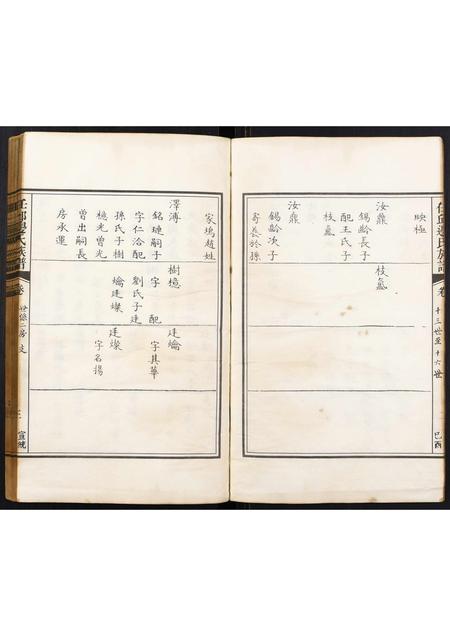 任邱邊氏族譜
卷
十三世至十六世
己酉
映極
汝鼎
錫齡長子
配王氏子
枝
枝
汝鼐
錫齡次子
寄養於孫
家塢趙姓
澤溥
銘璉嗣子
字仁洽配
孫氏子樹
檍光曾光
曾出嗣長
房承運
樹檍
字 配
劉氏子建
爚建燦
建爚
字其華
建燦
字名揚
任邱邊氏族譜
卷
世系二房 支
三
宣統